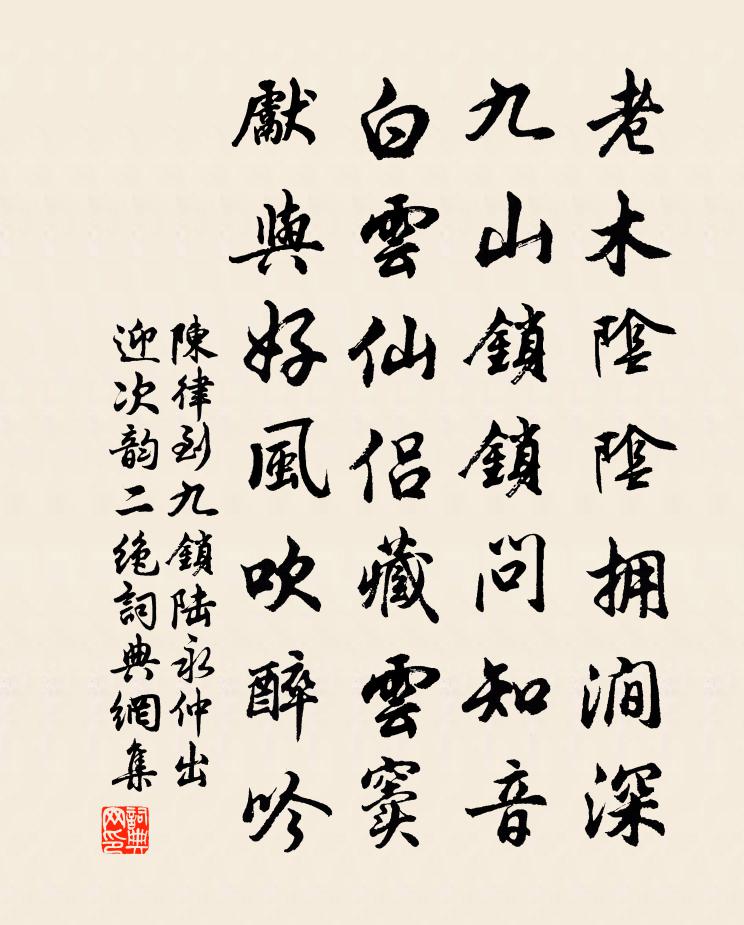 老木陰陰拥澗深
九山鎖鎖問知音
白雲仙侣藏雲竇
獻與好風吹醉吟
陳律到九鎖陸永仲出
迎次韵二绝詞典網集
詞典网印